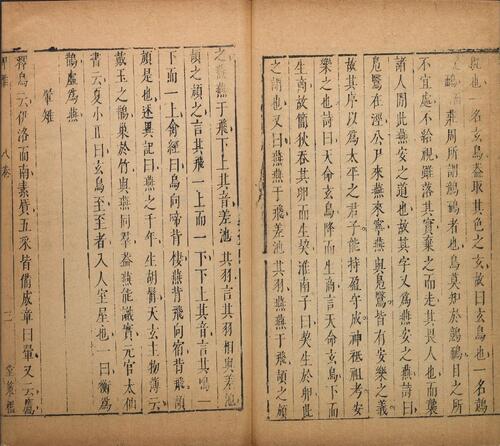 也一名玄鳥蓋取其色之玄故曰玄鳥也一名鷾
鴯莊周所謂鷾鴯者也鳥莫知於鷾鴯目之所
不宜處不給視雖落其實棄之而走其畏人也而襲
諸人閒此燕安之道也故其字又爲燕安之燕詩曰
鳧鷖在涇公尸來燕來寧燕與鳧鷖皆有安樂之義
故其序以爲太平之君子能持盈守成神祗祖考安
樂之也詩曰天命玄鳥降而生商言天命玄鳥下而
生商故簡狄吞其卵而生契淮南子曰契生於卵此
之謂也又曰燕燕于飛差池其羽燕燕于飛頡之頏
之燕燕于飛下上其音差池其羽言其羽相與差池
頡之頏之言其飛一上而一下下上其音言其鳴一
下而一上禽經曰鳥向啼背棲燕背飛向宿背飛頡
頏是也述異記曰燕之千年生胡髯天玄主物薄
戴玉之鵲巢於竹與燕同羣蓋燕能識實元官太仙
書云夏小正曰玄鳥至至者入人室星也一曰衡爲
鵲虛爲燕
翬雉
釋鳥云伊洛而南素質五采皆備成章曰翬又云鷹
埤雅 八卷 三 堂策檻